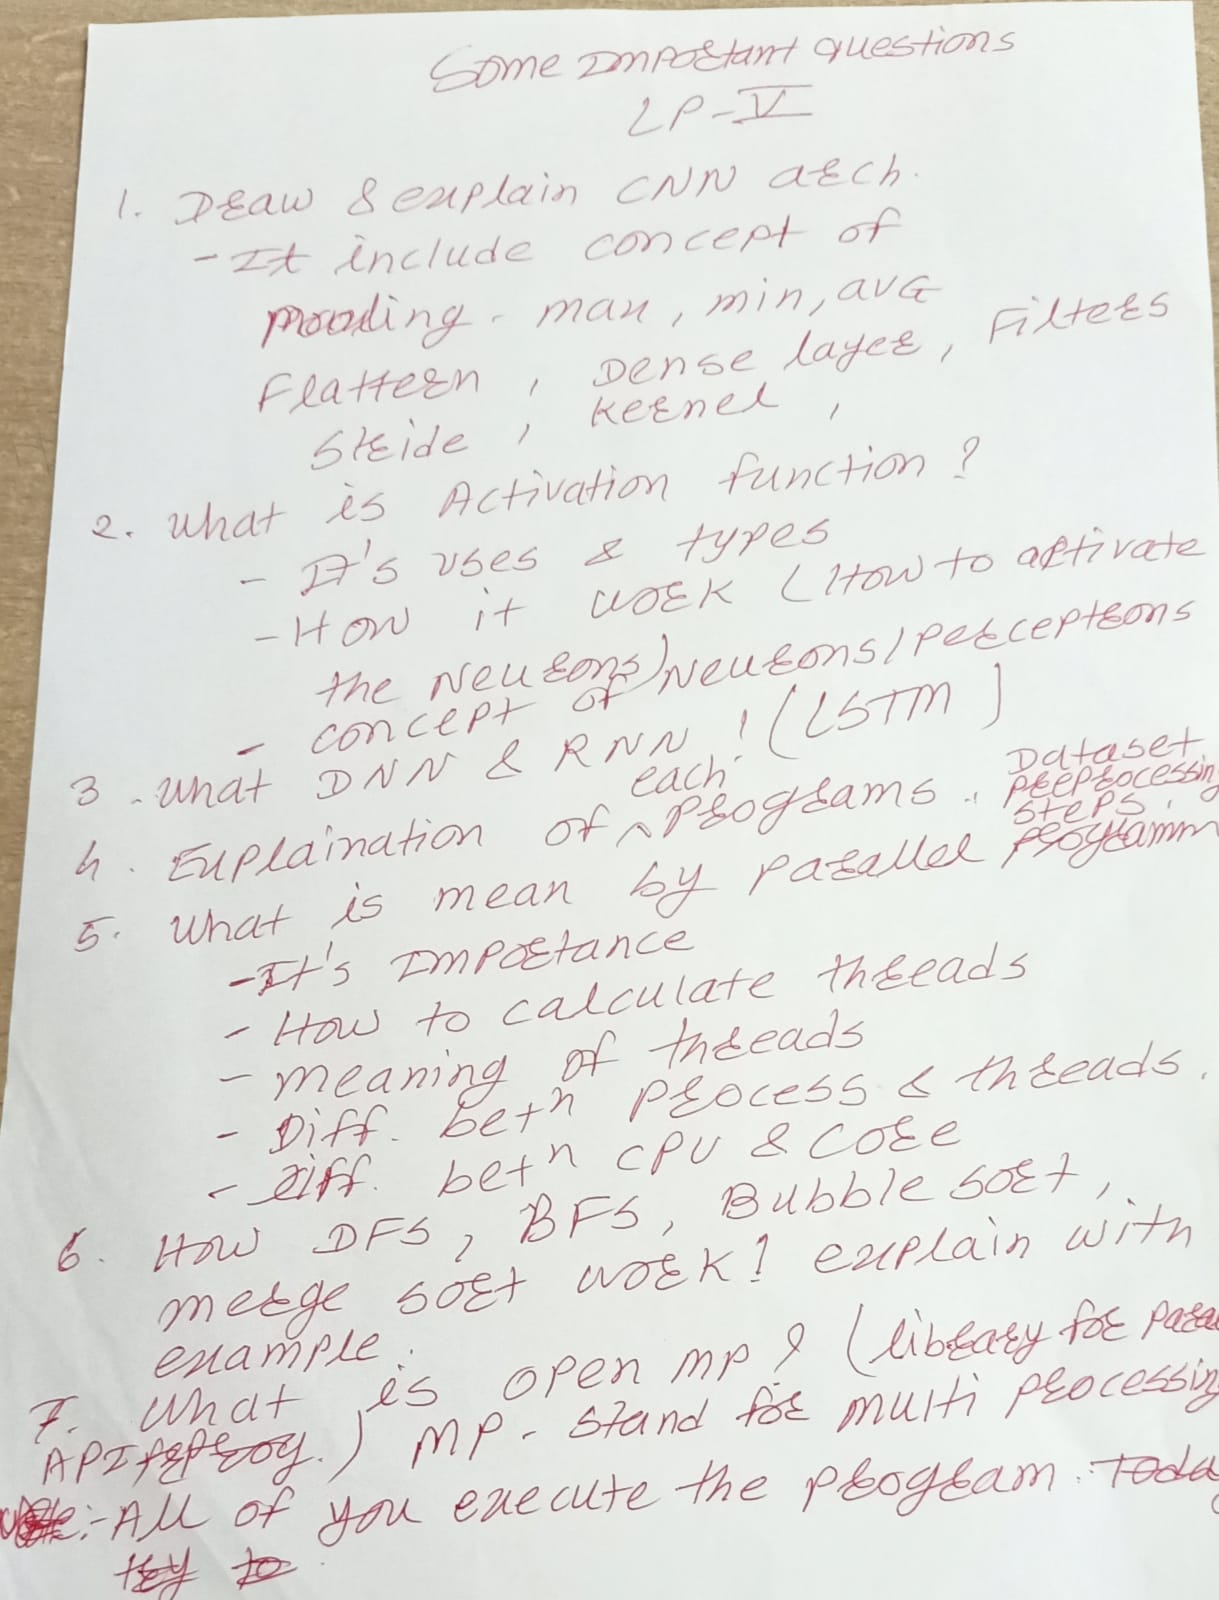 Some Important questions
LP-V
1. Draw & explain CNN arch.
- It include concept of
pooling - max, min, avg
Flattern, Dense layer, Filters
Stride, kernel,
2. What is Activation function?
- It's uses & types
- How it work (How to activate
the Neurons)
- concept of Neurons/perceptrons
3. What DNN & RNN? (LSTM)
4. Explaination of each programs. Dataset, preprocessing steps.
5. What is mean by parallel programm
- It's Importance
- How to calculate threads
- meaning of threads
- Diff. betn process & threads.
- Diff. betn CPU & core
6. How DFS, BFS, Bubble sort,
merge sort work? explain with
example.
7. What is open mp? (library for para
API prog.) MP - stand for multi processing
Note:- All of you execute the program. Today
try to